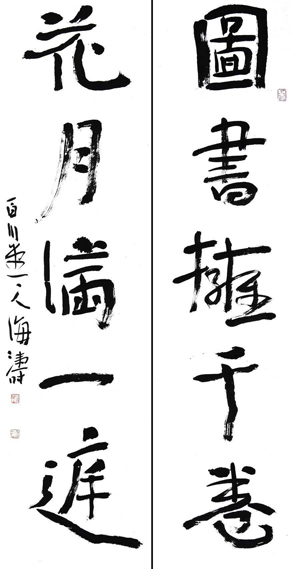 圖書擁千卷
花月滿一庭
百川一人海濤